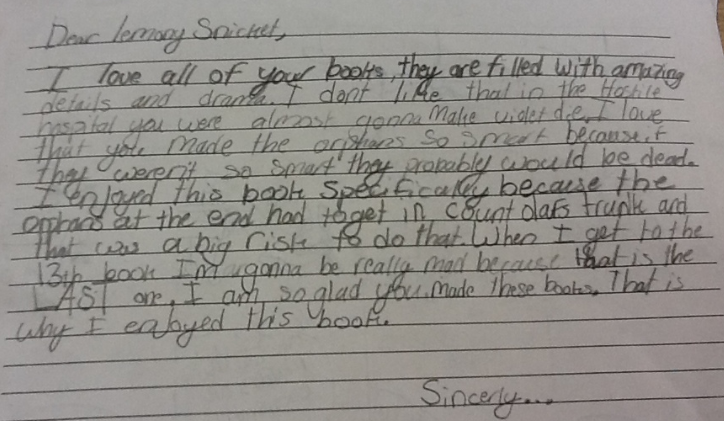 Dear lemony Snicket,
I love all of your books, they are filled with amazing
details and drama. I dont like that in the Hostile
hospital you were almost gonna make violet die. I love
that you made the orphans so smart because if
they weren't so smart they probably would be dead.
I enjoyed this book specifically because the
orphans at the end had to get in count olafs trunk and
that was a big risk to do that. When I get to the
13th book Im gonna be really mad because that is the
LAST one. I am so glad you made these books. That is
why I enjoyed this book.
Sincerly...